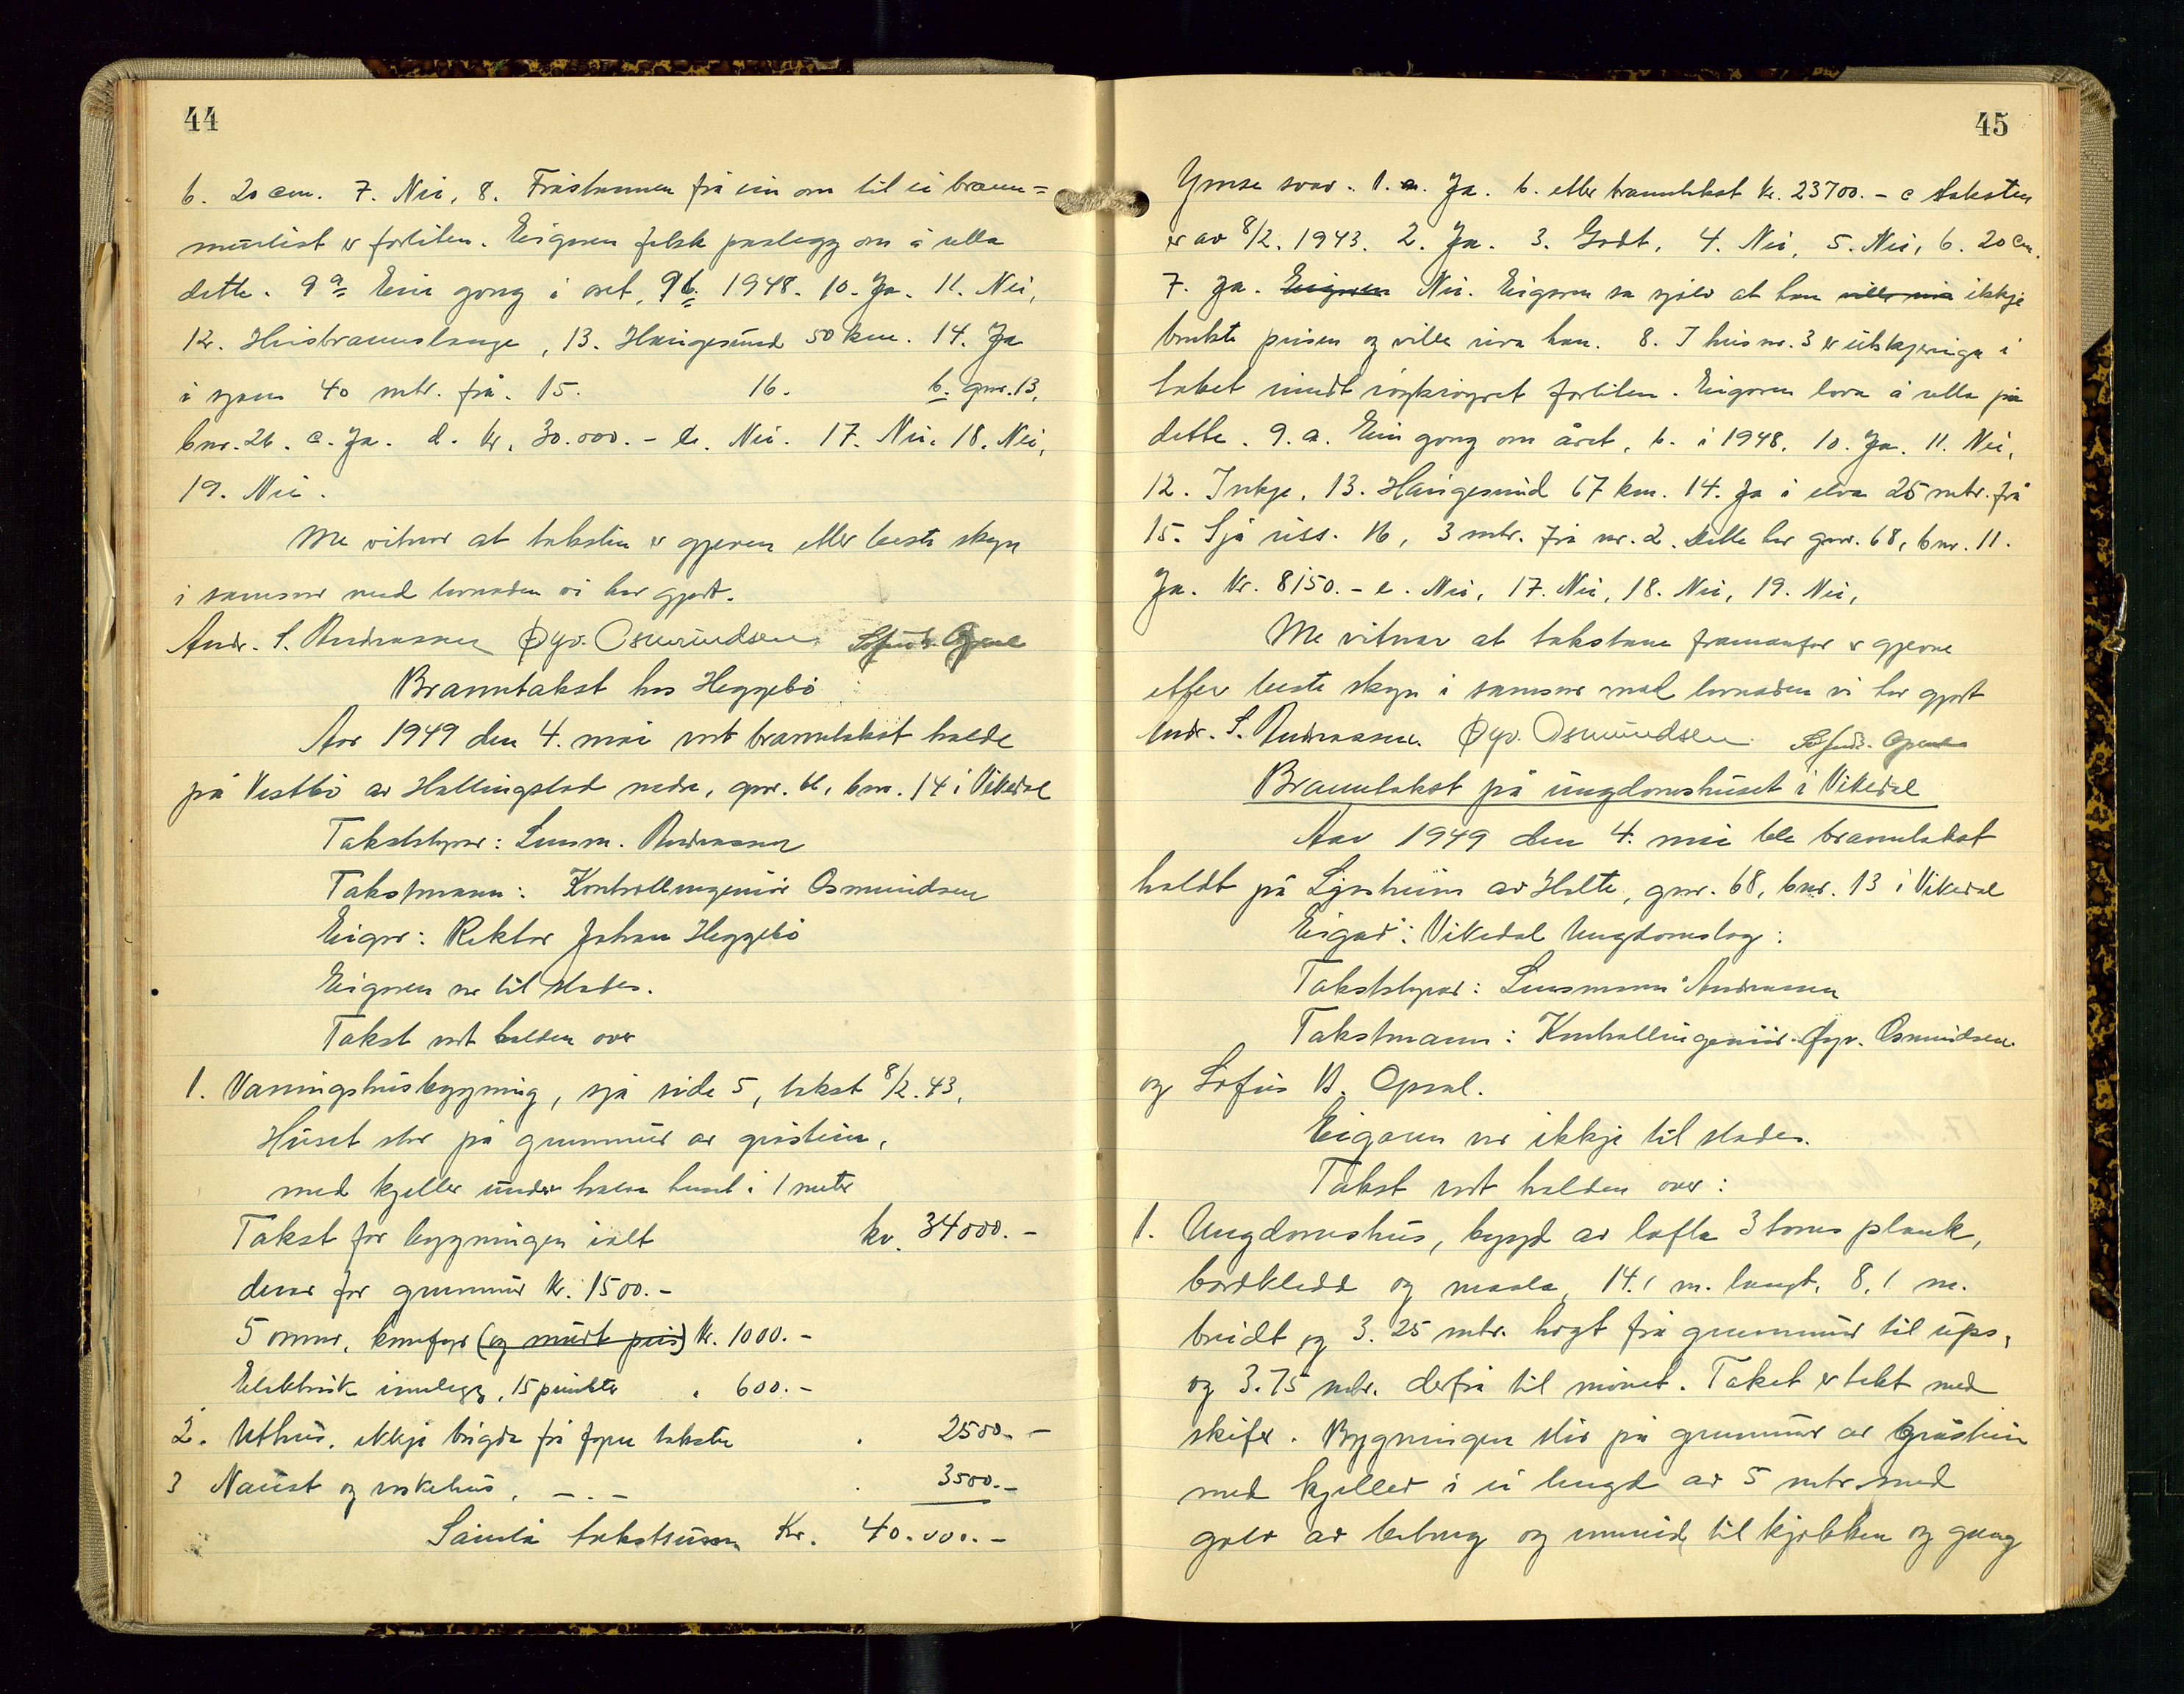 44
6. 20 cm. 7. Nei, 8. Fråstanden frå ein om til ei brann=
murlist er forliten. Eigaren fekk pålegg om å villa
dette. 9 a Ein gong i året, 9 b. 1948. 10. Ja. 11. Nei,
12. Husbrannslange, 13. Haugesund 50 km. 14. Ja
i sjøen 40 mtr. frå. 15. 16. b. gnr. 13,
bnr. 26. c. Ja. d. kr. 30.000.- e. Nei. 17. Nei. 18. Nei,
19. Nei.
Me vitnar at taksten er gjeven etter beste skyn
i samsvar med lovnaden vi har gjort.
Andr. S. Andreassen Øyv. Osmundsen Sofus B. Opsal
Branntakst hos Heggebö
Aar 1949 den 4. mai vart branntakst halde
på Vestbö av Hallingstad nedre, gnr. 61, bnr. 14 i Vikedal
Takststyrar: Lensm. Andreassen
Takstmann: Kontrollingeniör Osmundsen
Eigar: Rektor Johan Heggebö
Eigaren var til stades.
Takst vart halden over
1. Vaaningshusbygning, sjå side 5, takst 8/2. 43,
Huset står på grunnmur av gråstein,
med kjeller under halve huset i 1 meter
Takst for bygningen ialt kr. 34000.-
derav for grunnmur kr. 1500.-
5 omnar, komfyr (og murt peis) kr. 1000.-
Elektrisk innlegg, 15 punkter " 600.-
2. Uthus, ikkje brigda frå fyrre taksten . 2500.-
3 Naust og vaskehus, - . - . 3500.-
Samla takstsum Kr. 40.000.-
45
Ymse svar. 1. a. Ja. b. etter branntakst kr. 23700.- c taksten
er av 8/2. 1943. 2. Ja. 3. Godt, 4. Nei, 5. Nei, 6. 20 cm.
7. Ja. Eigaren Nei. Eigaren sa sjølv at han ville ikkje
brukte peisen og ville riva han. 8. I hus nr. 3 er utskjeringa i
taket rundt röykröyret forliten. Eigaren lova å villa på
dette. 9. a. Ein gong om året, b. i 1948. 10. Ja. 11. Nei,
12. Inkje, 13. Haugesund 67 km. 14. Ja i elva 25 mtr. frå
15. Sjå riss. 16, 3 mtr. frå nr. 2. Dette har gnr. 68, bnr. 11.
Ja. Kr. 8150.- e. Nei, 17. Nei, 18. Nei, 19. Nei,
Me vitnar at takstane framanfor er gjevne
etter beste skyn i samsvar med lovnaden vi har gjort
Andr. S. Andreassen. Øyv. Osmundsen Sofus B. Opsal
Branntakst på ungdomshuset i Vikedal
Aar 1949 den 4. mai ble branntakst
haldt på Ljosheim av Halte, gnr. 68, bnr. 13 i Vikedal
Eigar: Vikedal Ungdomslag:
Takststyrar: Lensmann Andreassen
Takstmann: Kontrollingeniör Øyv. Osmundsen
og Sofus B. Opsal.
Eigaren var ikkje til stades.
Takst vart halden over:
1. Ungdomshus, bygd av lafta 3 toms plank,
bordkledd og maala, 14.1 m. langt, 8,1 m.
breidt og 3.25 mtr. högt frå grunnmur til ups,
og 3.75 mtr. derfrå til mönet. Taket er tekt med
skifer. Bygningen står på grunnmur av gråstein
med kjeller i ei lengd av 5 mtr. med
golv av betong og innreid til kjökken og gang